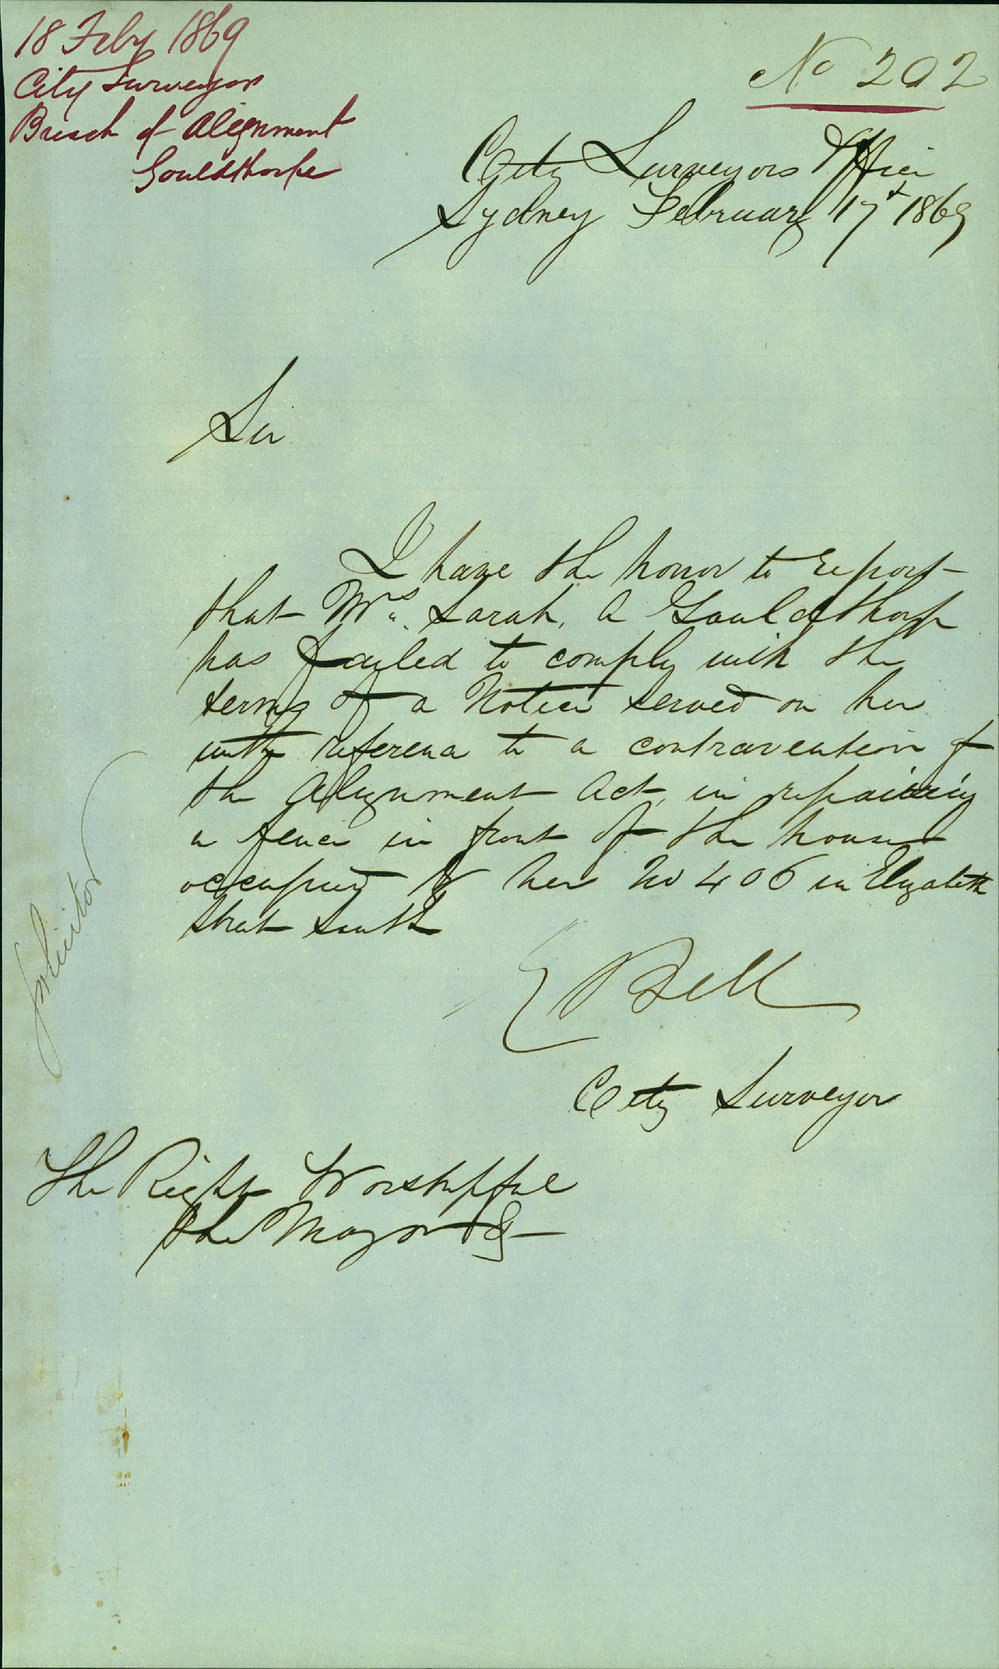 18 Feby 1869
City Surveyor
Breach of Alignment
Gouldthorpe
No 202
City Surveyors Office
Sydney February 17t 1869
Sir
I have the honor to report
that Mrs. Sarah. A Gouldthorp
has failed to comply with the
terms of a Notice served on her
with reference to a contravention of
the Alignment Act, in repairing
a fence in front of the house
occupied by her No 406 in Elizabeth
Street South
E Bell
City Surveyor
The Right Worshipful
The Mayor &c
Solicitor